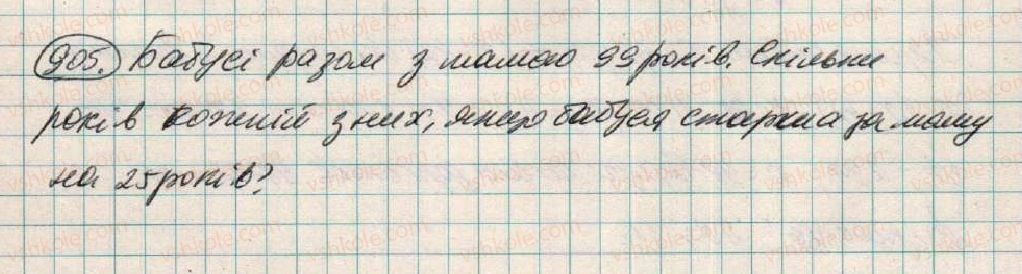 905. Бабусі разом з мамою 99 років. Скільки
років кожній з них, якщо бабуся старша за маму
на 25 років?